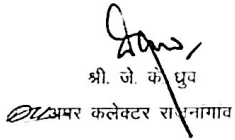 श्री. जे. के. ध्रुव
अपर कलेक्टर राजनांगांव